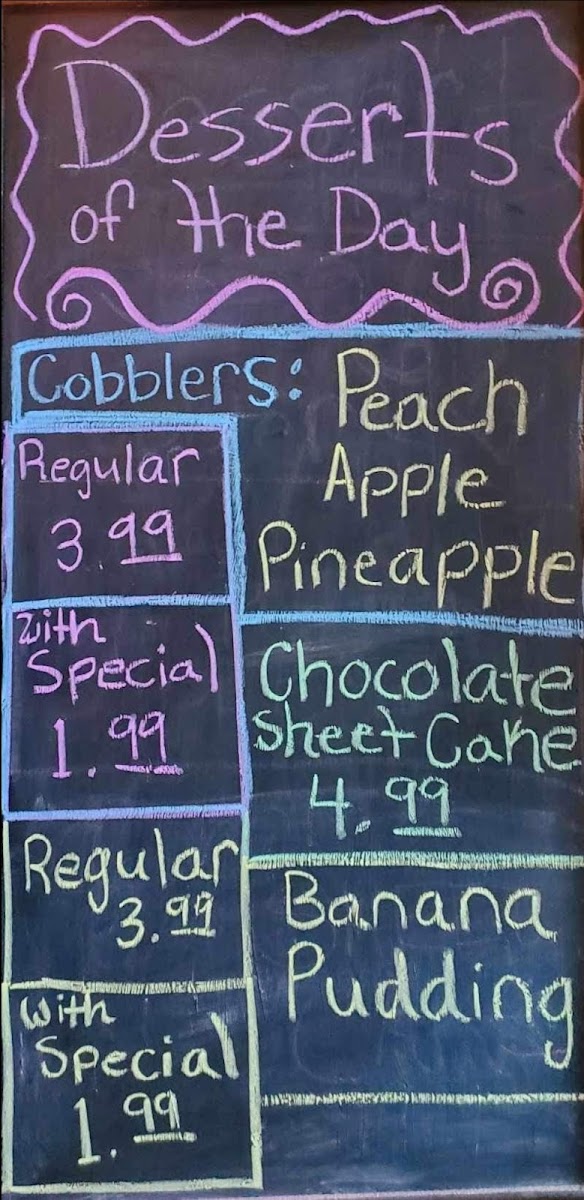 Desserts
of the Day
Cobblers:
Peach
Apple
Pineapple
Regular
3.99
With
Special
1.99
Chocolate
Sheet Cake
4.99
Regular
3.99
With
Special
1.99
Banana
Pudding